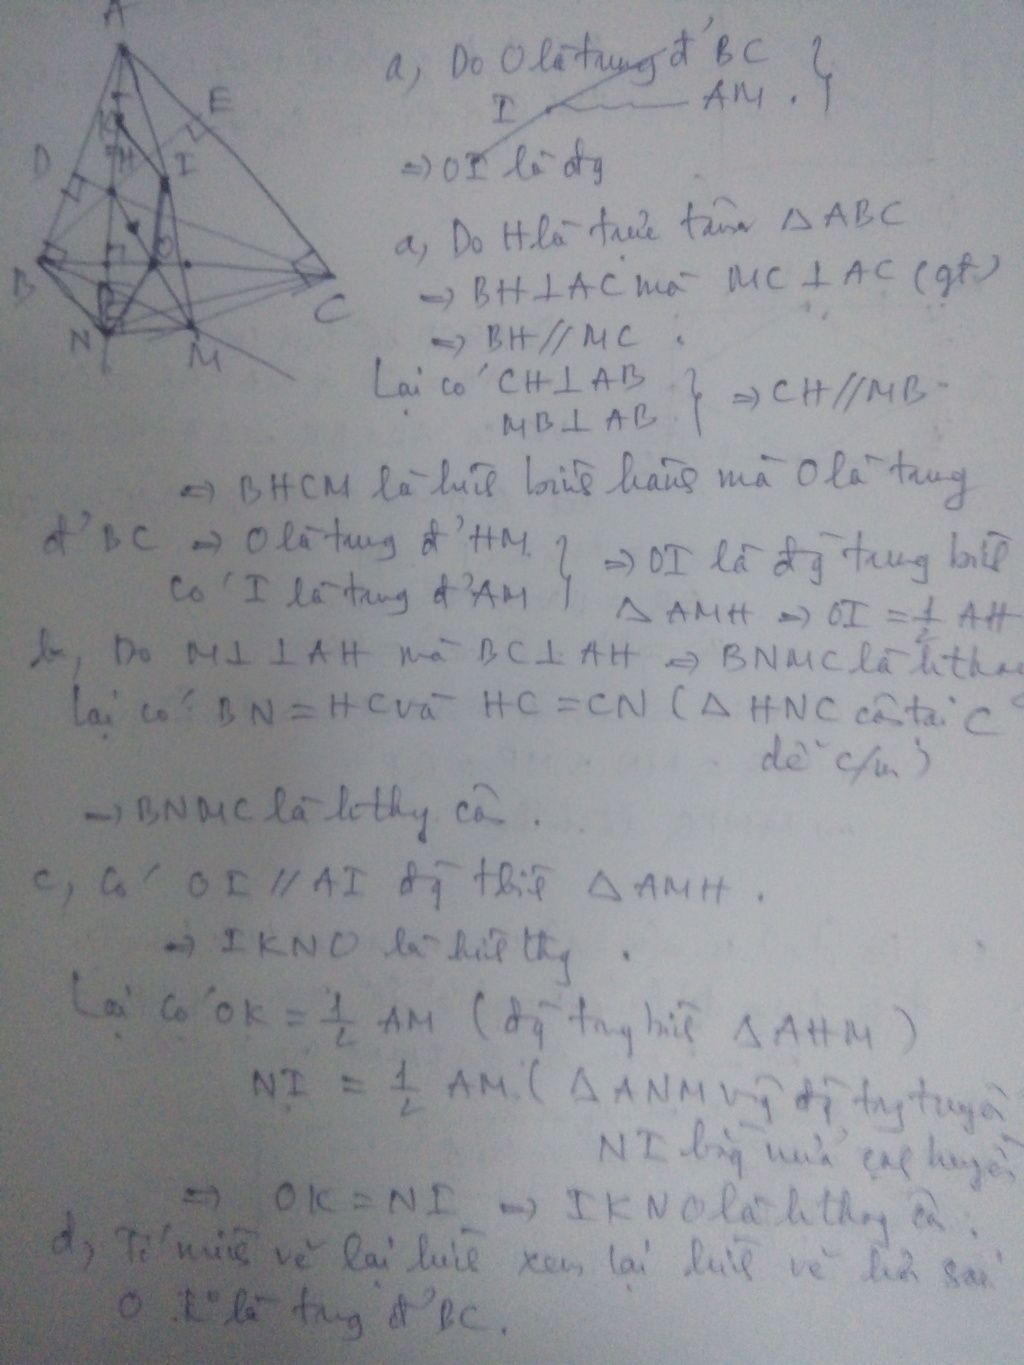 A
E
K
D
H
I
B
O
C
N
M
a, Do O là trung đ' BC
I AM.
⇒ OI là đg
a, Do H là trực tâm △ ABC
⇒ BH ⊥ AC mà MC ⊥ AC (gt)
⇒ BH // MC.
Lại có CH ⊥ AB
MB ⊥ AB } ⇒ CH // MB
⇒ BHCM là hình bình hành mà O là trung
đ' BC ⇒ O là trung đ' HM } ⇒ OI là đg trung bình
Có I là trung đ' AM △ AMH ⇒ OI = 1/2 AH
b, Do M⊥ ⊥ AH mà BC ⊥ AH ⇒ BNMC là hthang
Lại có BN = HC và HC = CN (△ HNC cân tại C
dễ c/m)
⇒ BNMC là hthg cân.
c, Có OI // AI đg tbình △ AMH.
⇒ IKNO là hình thg.
Lại có OK = 1/2 AM (đg trg bình △ AHM)
NI = 1/2 AM (△ ANM vg đg trg tuyến
NI bằng nửa cạnh huyền
⇒ OK = NI ⇒ IKNO là hthang cân.
d, Tí mình vẽ lại hình xem lại hình vẽ hơi sai
O là trung đ' BC.